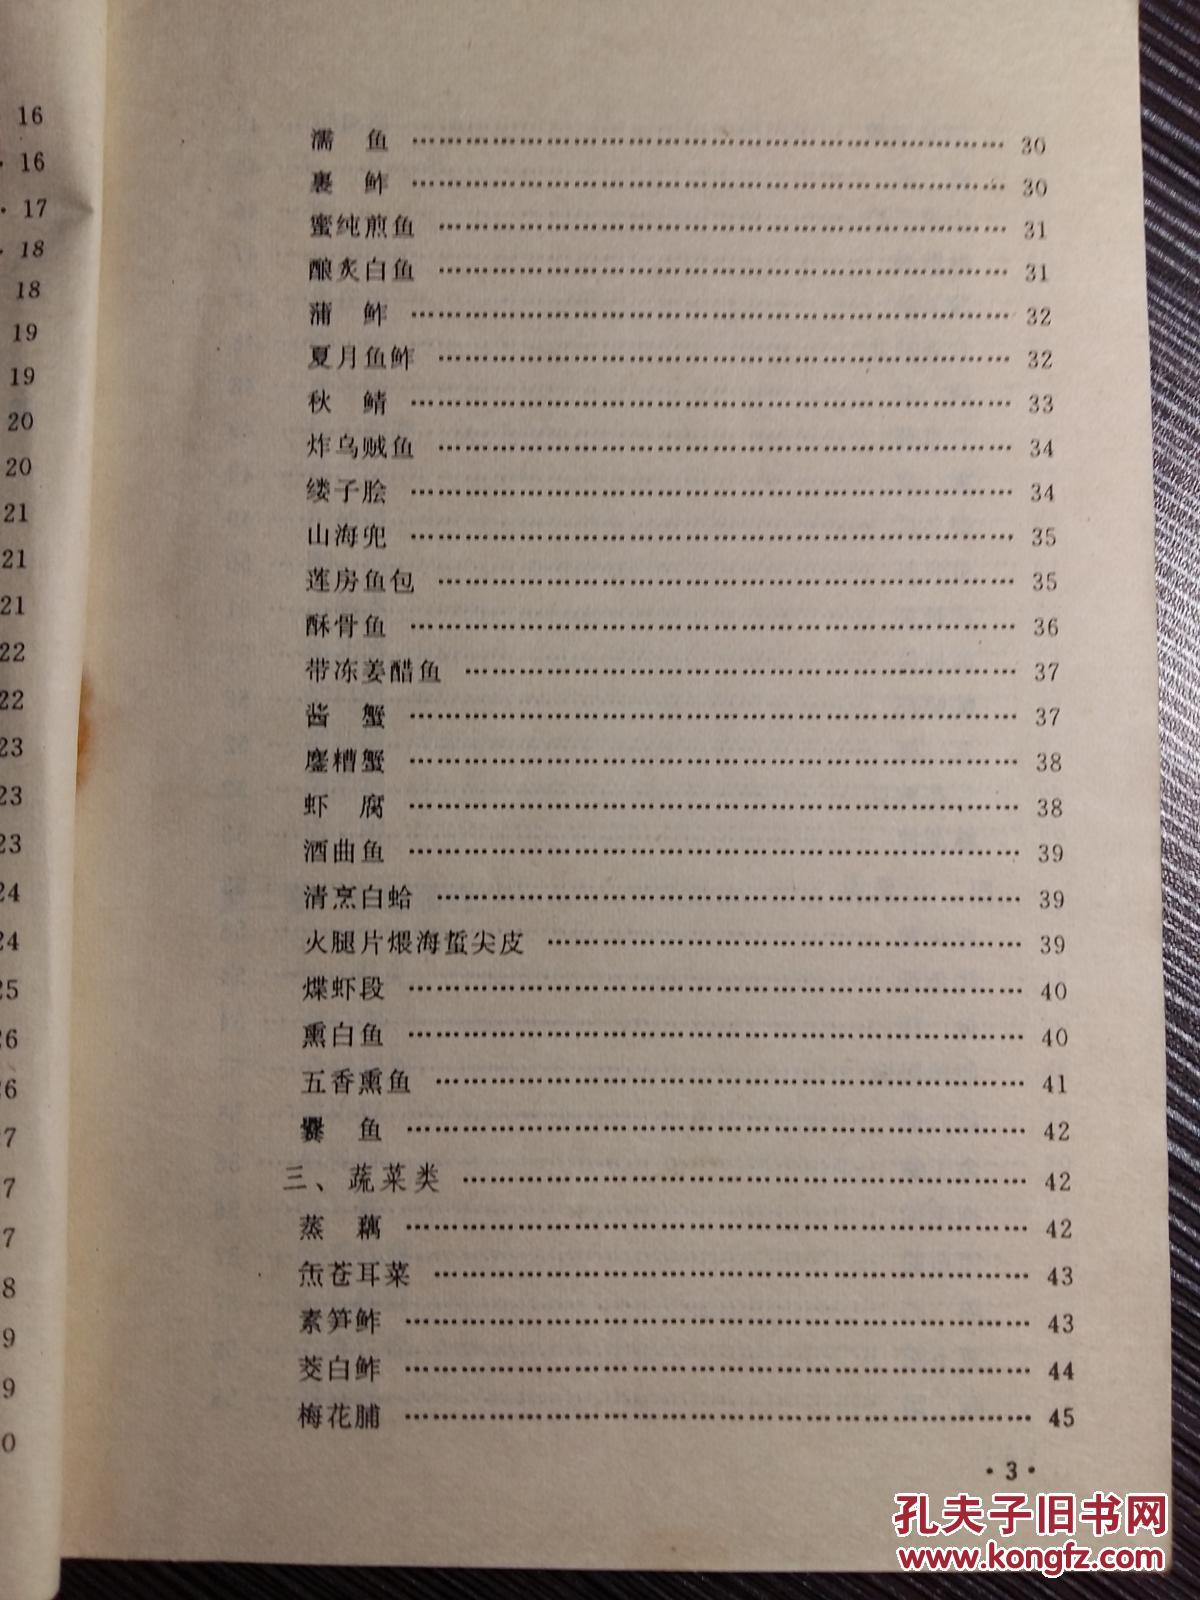 16
16
17
18
18
19
19
20
20
21
21
21
22
22
23
23
23
24
24
25
26
26
7
7
7
8
9
9
0
濡 鱼 …… 30
裹 鲊 …… 30
蜜纯煎鱼 …… 31
酿炙白鱼 …… 31
蒲 鲊 …… 32
夏月鱼鲊 …… 32
秋 鲭 …… 33
炸乌贼鱼 …… 34
缕子脍 …… 34
山海兜 …… 35
莲房鱼包 …… 35
酥骨鱼 …… 36
带冻姜醋鱼 …… 37
酱 蟹 …… 37
鏖糟蟹 …… 38
虾 腐 …… 38
酒曲鱼 …… 39
清烹白蛤 …… 39
火腿片煨海蜇尖皮 …… 39
煠虾段 …… 40
熏白鱼 …… 40
五香熏鱼 …… 41
爨 鱼 …… 42
三、蔬菜类 …… 42
蒸 藕 …… 42
缹苍耳菜 …… 43
素笋鲊 …… 43
茭白鲊 …… 44
梅花脯 …… 45
·3·
孔夫子旧书网
www.kongfz.com